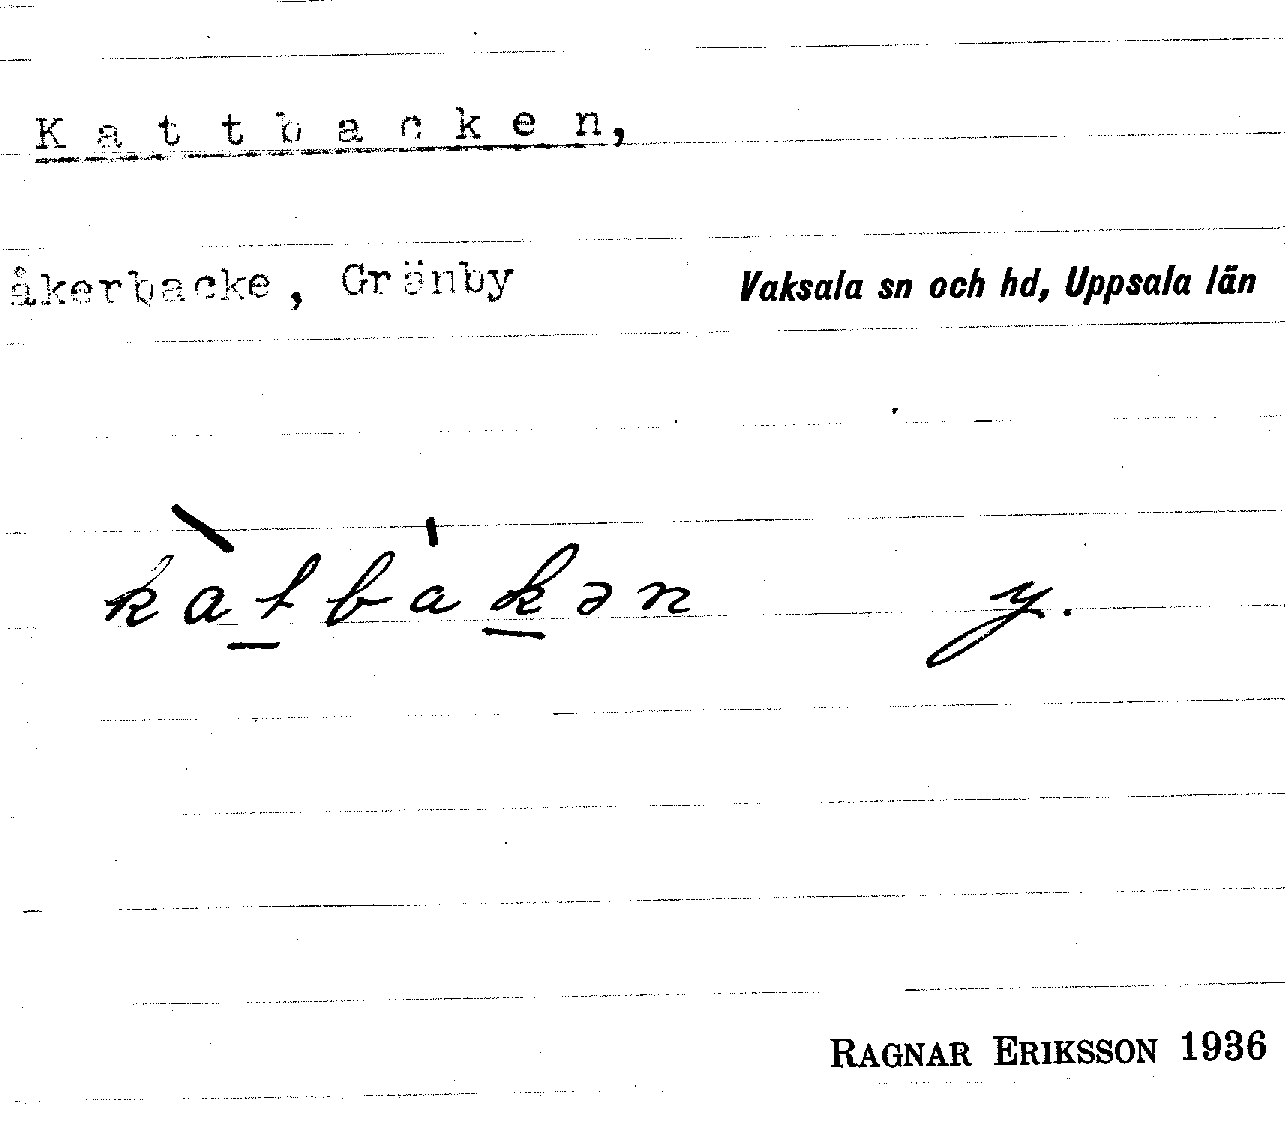 Kattbacken,
åkerbacke, Gränby Vaksala sn och hd, Uppsala län
kàt̲bàk̲ən y.
RAGNAR ERIKSSON 1936